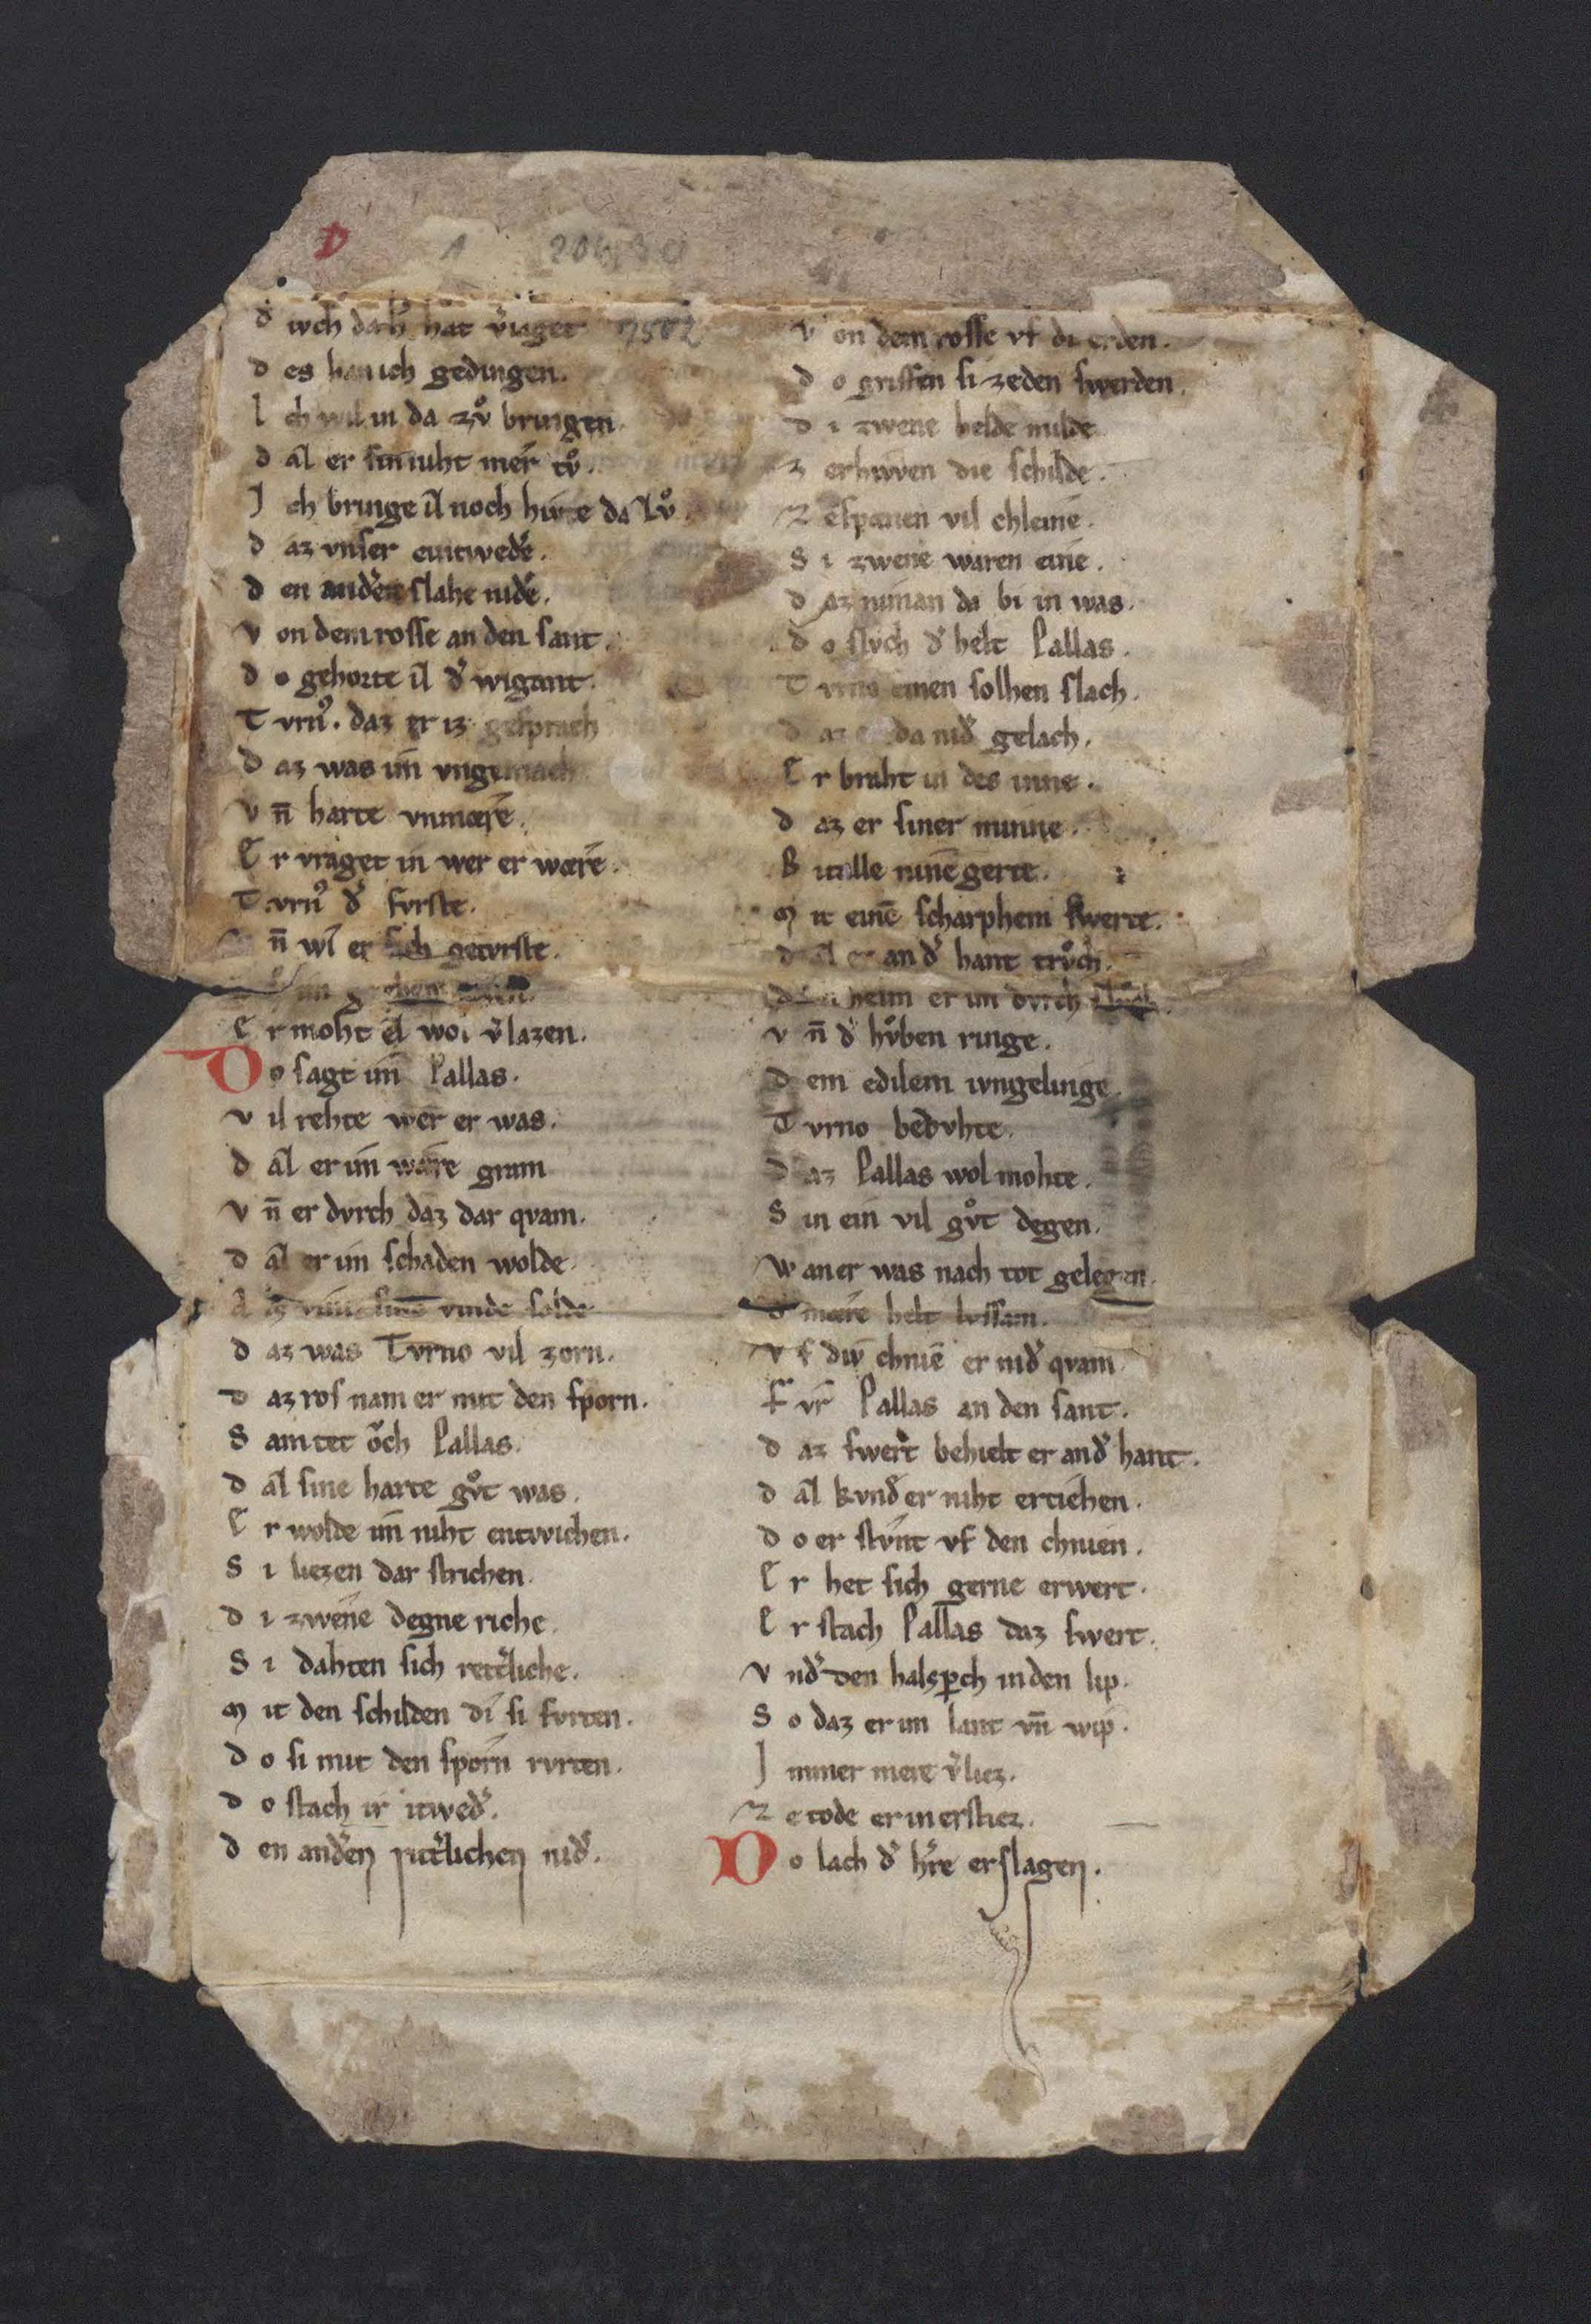 D 1 20630
d͛ iuch da h͛ hat v͛iaget 7502
d es han ich gedingen.
I ch wil in da zvͦ bringen
d aꝉ er sin niht mer tvͦ.
J ch bringe iꝉ noch hivte da zvͦ
d az vnser eintwed͛e.
d en and͛en slahe nid͛e.
v on dem rosse an den sant.
d o gehorte iꝉ d͛ wigant.
T vrn᾽. daz er iz gesprach
d az was im vngemach
v n̄ harte vnmære.
E r vraget in wer er wære.
T vrn᾽ d͛ fvrste.
n̄ wi er sich getvrste.
E r moht eꝉ wol v͛lazen.
D o sagt im Pallas.
v il rehte wer er was.
d aꝉ er im wære gram
v n̄ er dvrch daz dar qvam.
d aꝉ er im schaden wolde
sinē vinde solde
d az was Tvrno vil zorn.
d az ros nam er mit den sporn.
S am tet oͮch Pallas.
d aꝉ sine harte gvͦt was.
E r wolde im niht entwichen.
S i liezen dar strichen.
d i zwene degne riche.
S i dahten sich ritt͛liche.
M it den schilden di si fvrten.
d o si mit den sporn rvrten.
d o stach ir itwed͛.
d en and͛en ritt͛lichen nid͛.
v on dem rosse vf di erden.
d o griffen si zeden swerden.
d i zwene helde milde
z erhiwen die schilde.
Z espænen vil chleine.
S i zwene waren eine.
d az niman da bi in was.
d o slvch d͛ helt Pallas.
T vrno einen solhen slach.
d az er da nid͛ gelach.
E r braht in des inne.
d az er siner minne.
B italle ninē gerte.
M it einē scharphem swerte.
d aꝉ er an d͛ hant trvͦch.
helm er im dvrch slvͦch.
v n̄ d͛ hvͦben ringe.
D em edilem ivngelinge.
T vrno bedvhte.
D az Pallas wol mohte.
S in ein vil gvͦt degen.
W an er was nach tot gelegen.
d͛ mære helt lussam.
v f diw chniē er nid͛ qvam
F vr Pallas an den sant.
d az swert behielt er an d͛ hant.
d aꝉ kvnd͛ er niht erziehen.
d o er stvnt vf den chnien.
E r het sich gerne erwert.
E r stach Pallas daz swert.
v nd͛ den halsperch in den lip.
S o daz er im lant vn̄ wip.
J mmer mere v͛liez.
Z e tode er in erstiez.
D o lach d͛ h͛re erslagen.